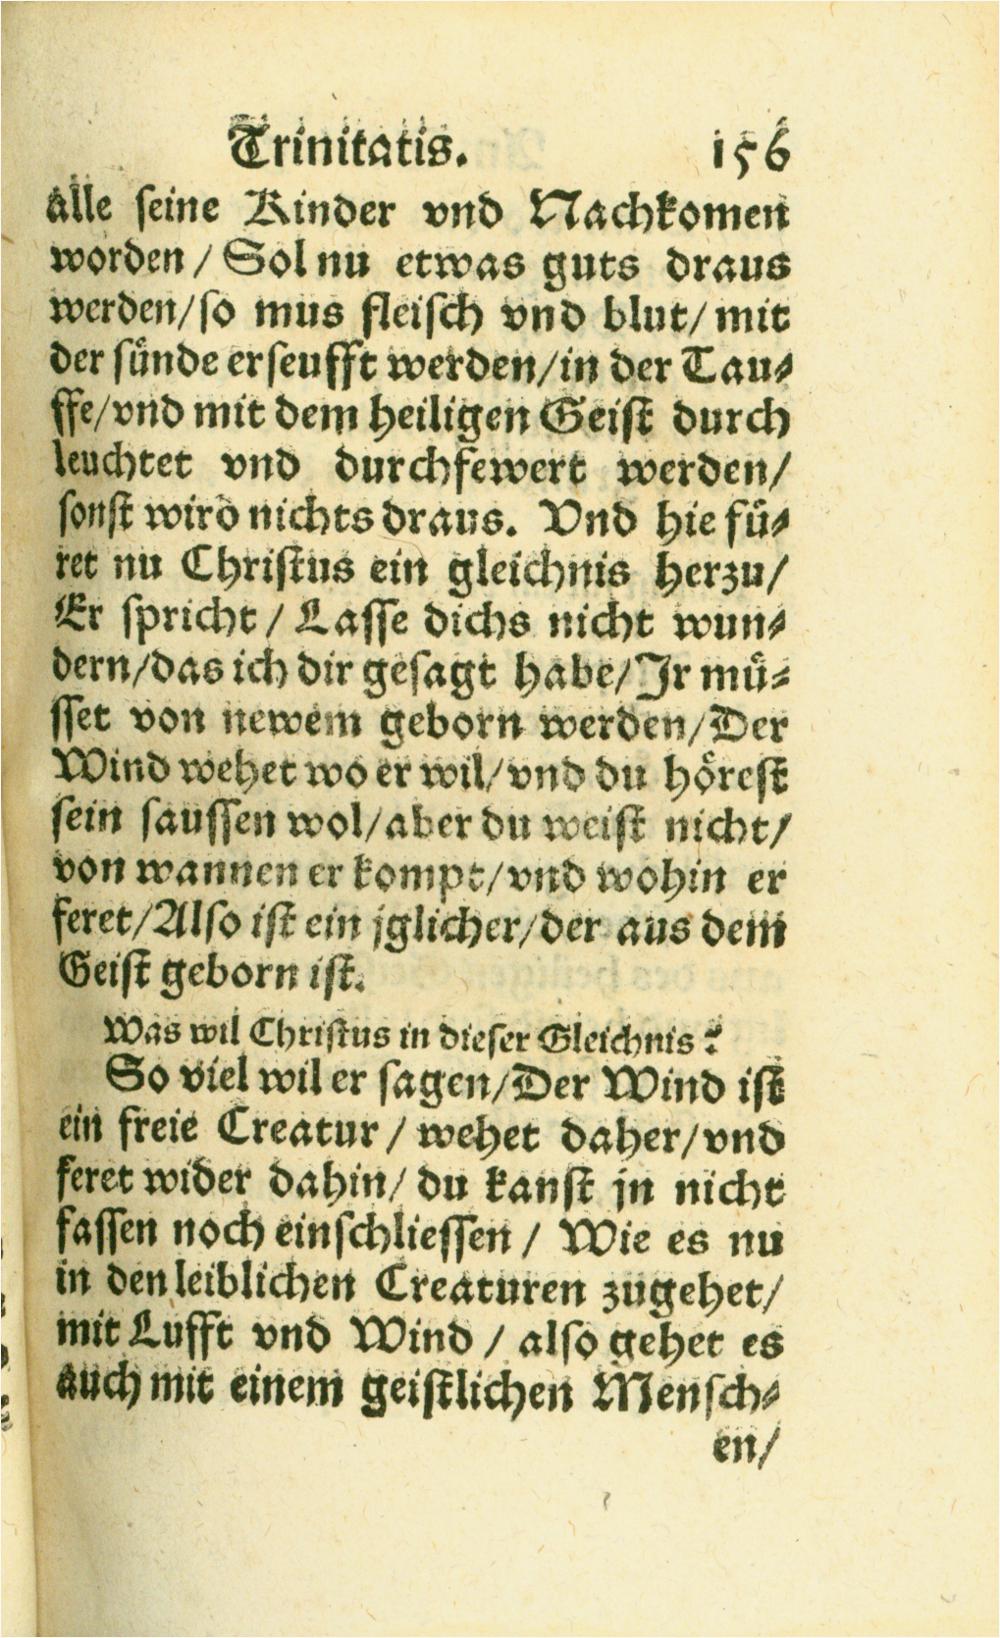 Trinitatis. 156
alle seine Kinder vnd Nachkomen
worden / Sol nu etwas guts draus
werden/so mus fleisch vnd blut/mit
der sünde erseufft werden/in der Tau⸗
ffe/vnd mit dem heiligen Geist durch
leuchtet vnd durchfewert werden/
sonst wird nichts draus. Vnd hie fü⸗
ret nu Christus ein gleichnis herzu/
Er spricht / Lasse dichs nicht wun⸗
dern/das ich dir gesagt habe/Jr mü⸗
sset von newem geborn werden/Der
Wind wehet wo er wil/vnd du hörest
sein saussen wol/aber du weist nicht/
von wannen er kompt/vnd wohin er
feret/Also ist ein jglicher/der aus dem
Geist geborn ist.
Was wil Christus in dieser Gleichnis?
So viel wil er sagen/Der Wind ist
ein freie Creatur / wehet daher/vnd
feret wider dahin/ du kanst jn nicht
fassen noch einschliessen / Wie es nu
in den leiblichen Creaturen zugehet/
mit Lufft vnd Wind / also gehet es
auch mit einem geistlichen Mensch⸗
en/